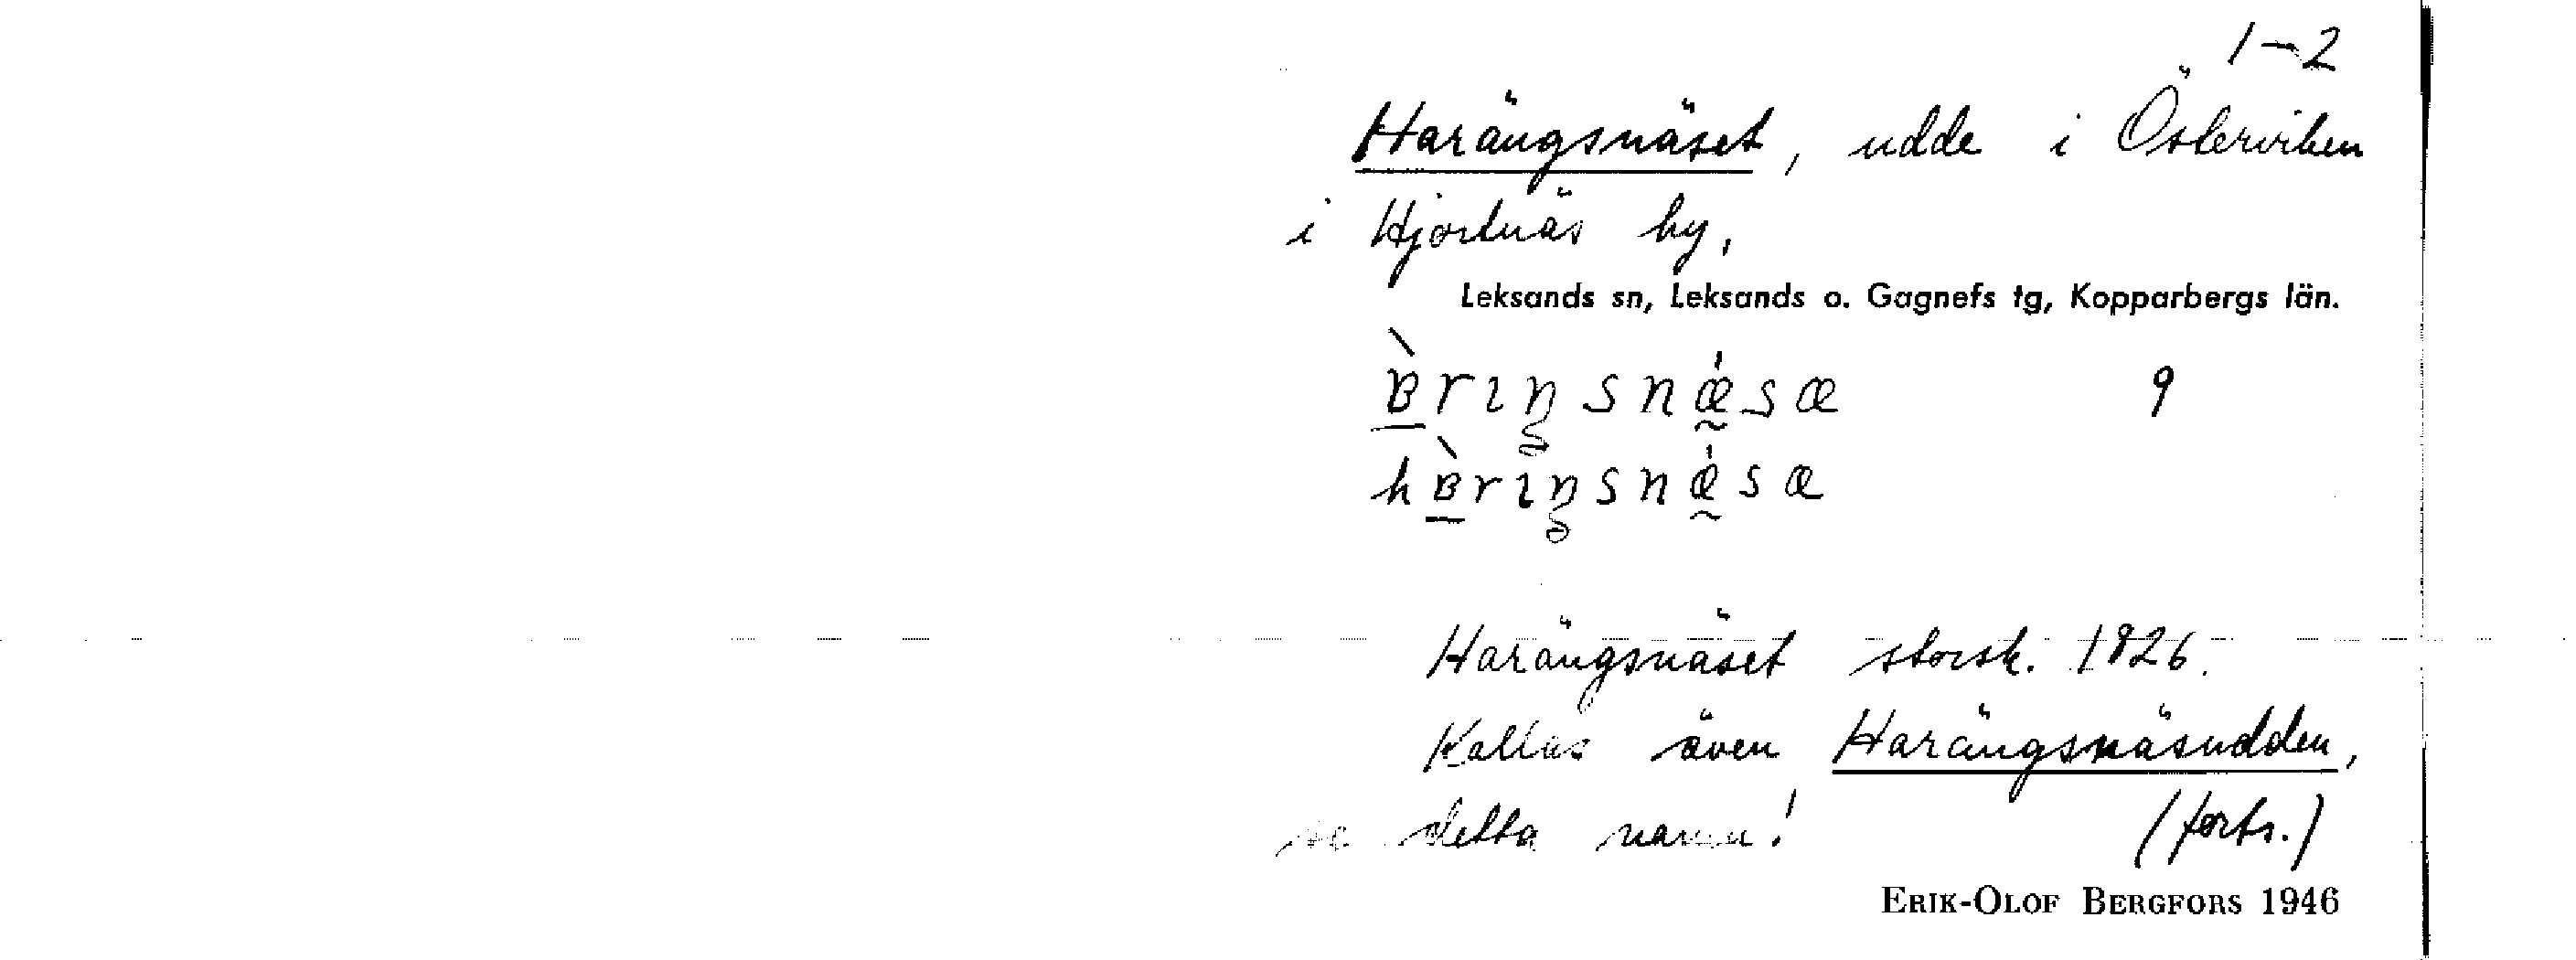 1-2
Harängsnäset, udde i Österviken
i Hjortnäs by,
Leksands sn, Leksands o. Gagnefs tg, Kopparbergs län.
9
Harängsnäset storsk. 1826.
Kallas även Harängsnäsudden,
se detta namn! (forts.)
ERIK-OLOF BERGFORS 1946